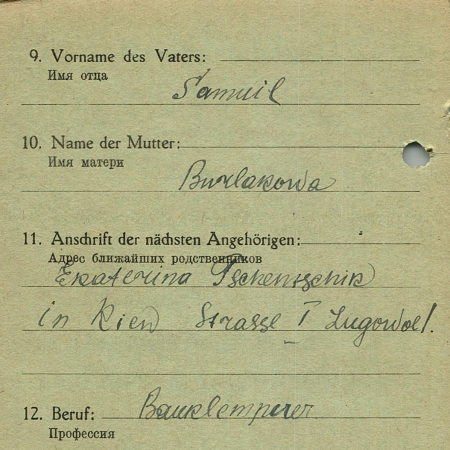 9. Vorname des Vaters:
Имя отца
Samuil
10. Name der Mutter:
Имя матери
Burlakowa
11. Anschrift der nächsten Angehörigen:
Адрес ближайших родственников
Ekaterina
in Kiew Strasse I Lugowoe!.
12. Beruf: Bauklempner
Профессия